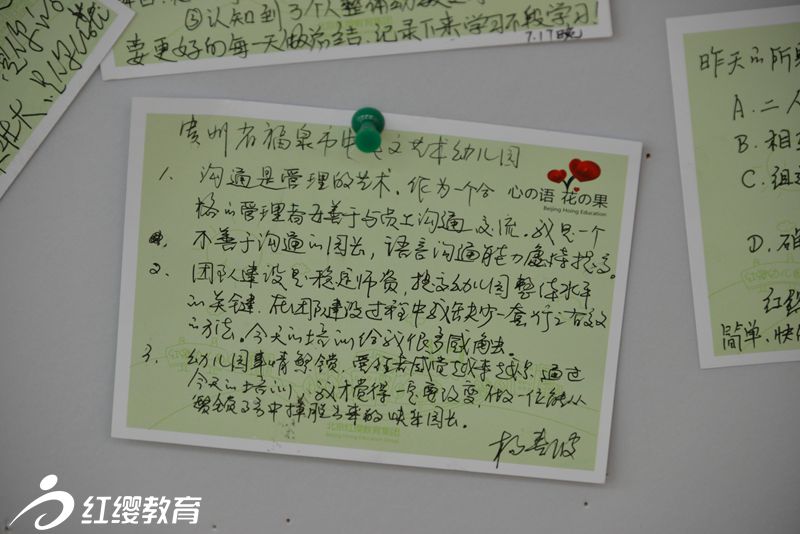 ③认知到3个人整
要更好的每一天做总结、记录下来学习不段学习!
7.17晚
贵州省福泉市 艺术幼儿园
心の语 花の果
Beijing Hoing Education
1. 沟通是管理的艺术。作为一个合
格的管理者要善于与员工沟通、交流。我是一个
不善于沟通的园长,语言沟通能力 待提高。
2. 团队建设是稳定师资,提高幼儿园整体水平
的关键。在团队建设过程中我缺少一套行之有效
的方法。今天的培训给我很多感触。
3. 幼儿园事情繁锁,管理者感觉越来越忙,通过
今天的培训,我才觉得 要改变,做一位能从
繁锁 中挣脱出来的快乐园长。
杨
北京红缨教育集团
昨天的所
A.二人
B.相互
C.组
D.确
红缨
简单、快
红缨教育